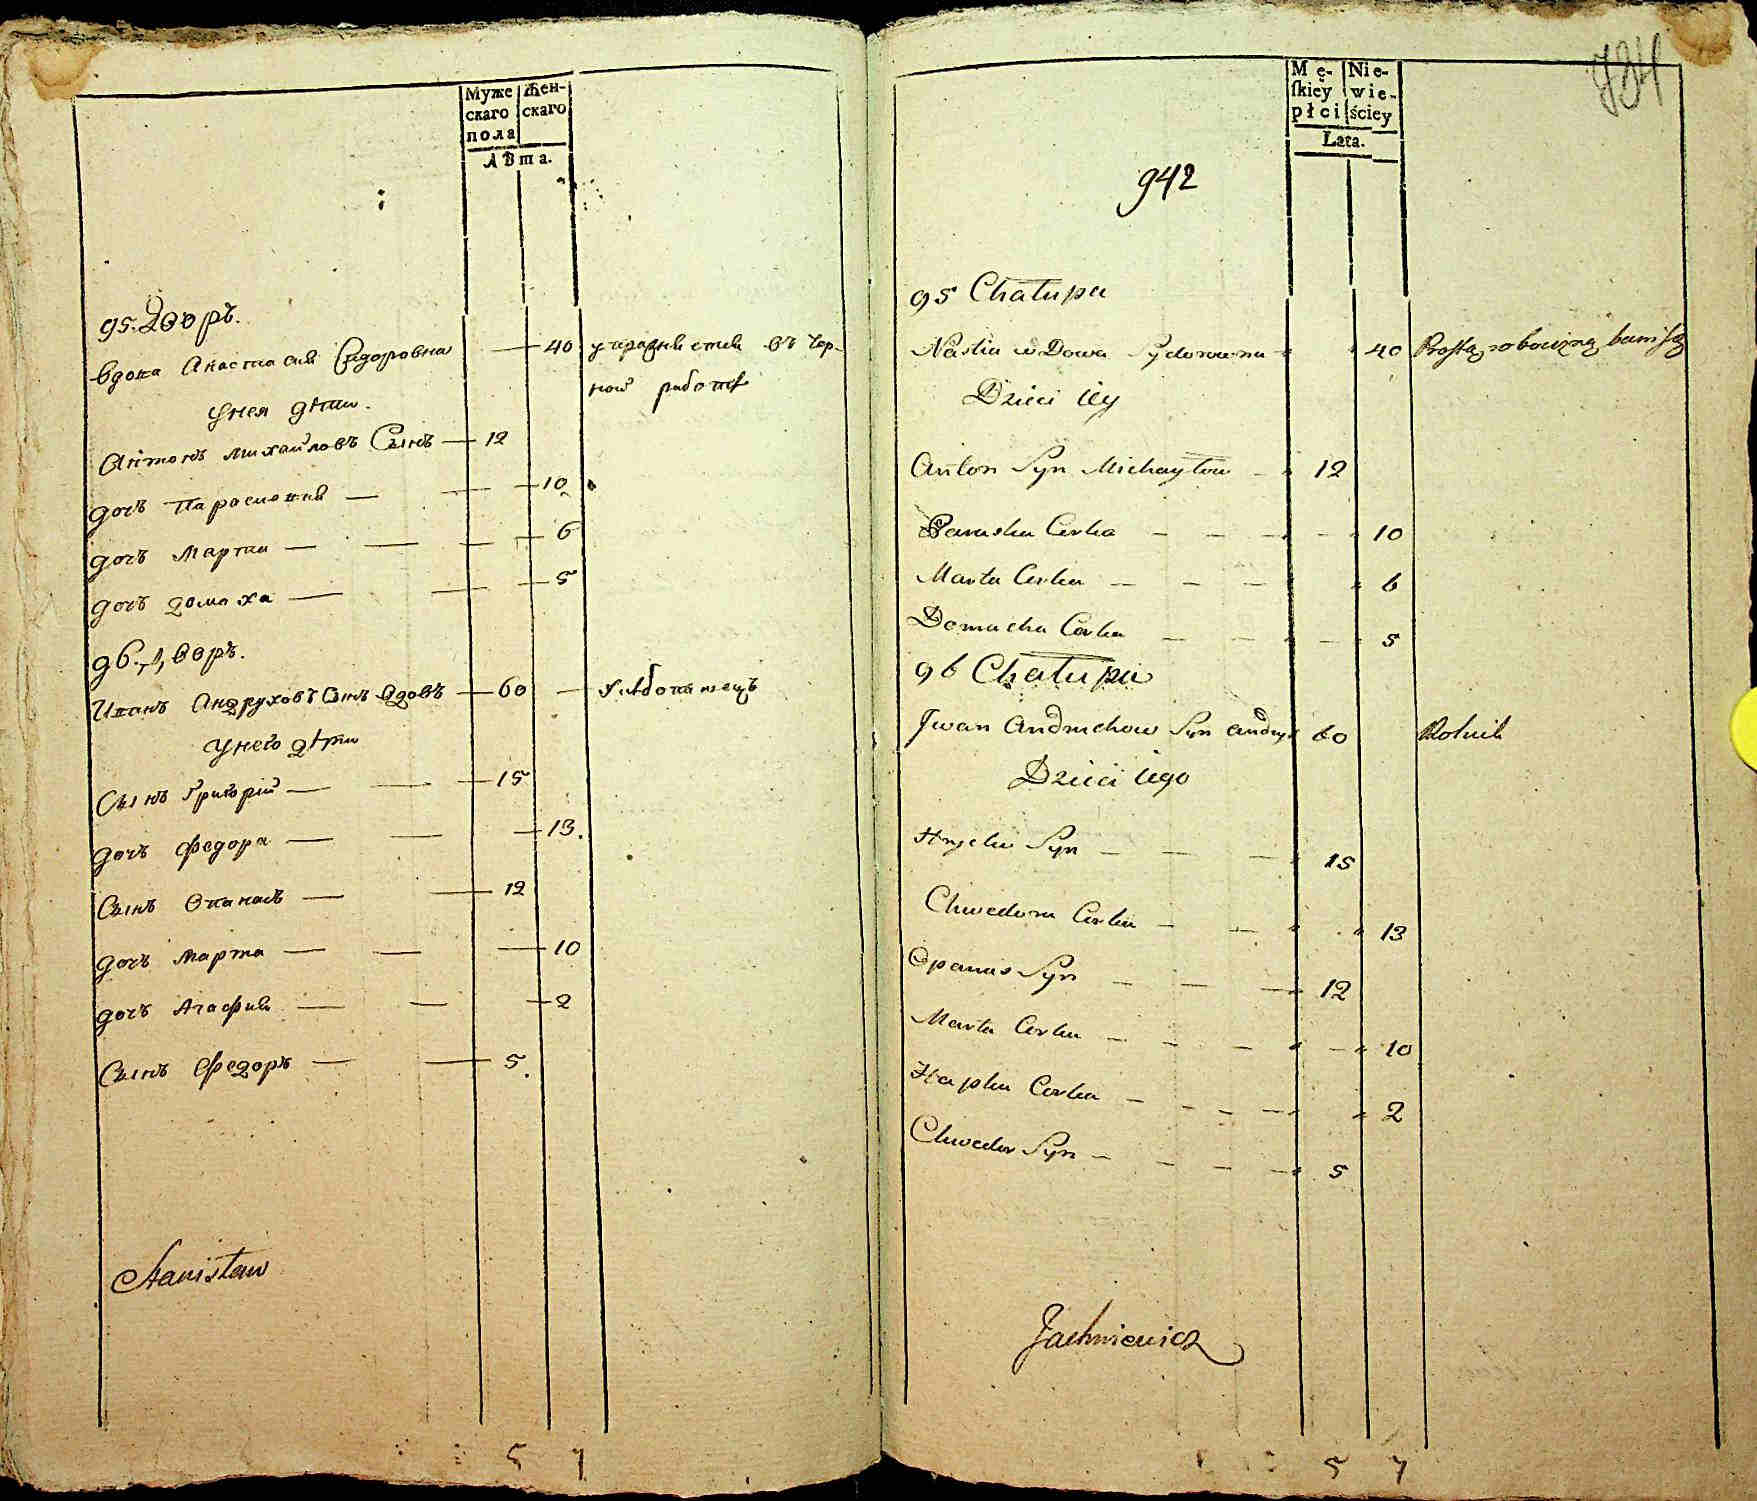 Муже
скаго
пола
Жен-
скаго
лѣта.
95. Дворъ.
вдова Анастасия Сидоровна — 40 упражняется въ чер-
ной работѣ
у нея дѣти.
Антонъ Михайловъ Сынъ — 12
дочь Парасковия — 10
дочь Марта — 6
дочь Домаха — 5
96. Дворъ.
Иванъ Андруховъ Сынъ вдовъ — 60 — хлѣбопашецъ
у него дѣти
Сынъ Григорій — 15
дочь Федора — 13.
Сынъ Опанасъ — 12
дочь Марта — 10
дочь Агафия — 2
Сынъ Федоръ — 5.
Stanisław
5 7
734
Mę-
skiey
płci
Nie-
wie-
ściey
Lata.
942
95 Chałupa
Nastia wDowa Sydorowna 40 Prostą robocizną bawi się
Dzieci Iey
Anton Syn Michayłow - 12
Paraska Corka - - - 10
Marta Corka - - - 6
Domacha Corka - - - 5
96 Chałupa
Jwan Andruchow Syn 60 Rolnik
Dzieci Iego
Hryćko Syn - - - 15
Chwedora Corka - - 13
Opanas Syn - - - 12
Marta Corka - - - 10
Hapka Corka - - - - 2
Chwedor Syn - - - - 5
Jachniewicz
5 7